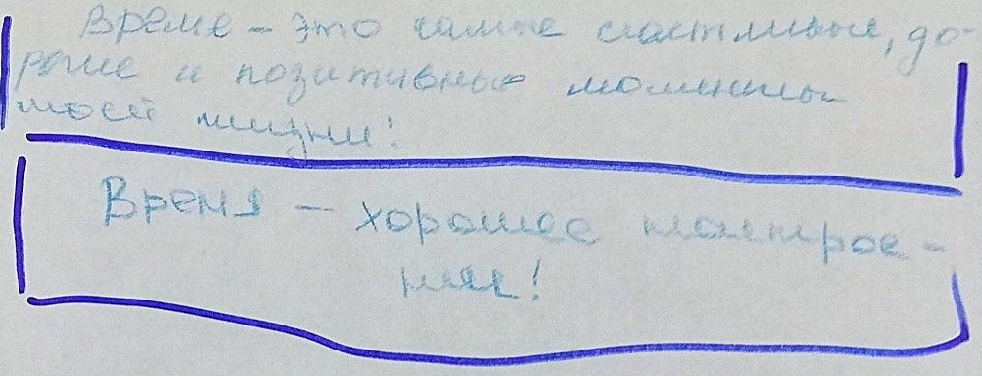 Время – это самые счастливые, до-
рогие и позитивные моменты
моей жизни!
Время – хорошее настрое-
ние!